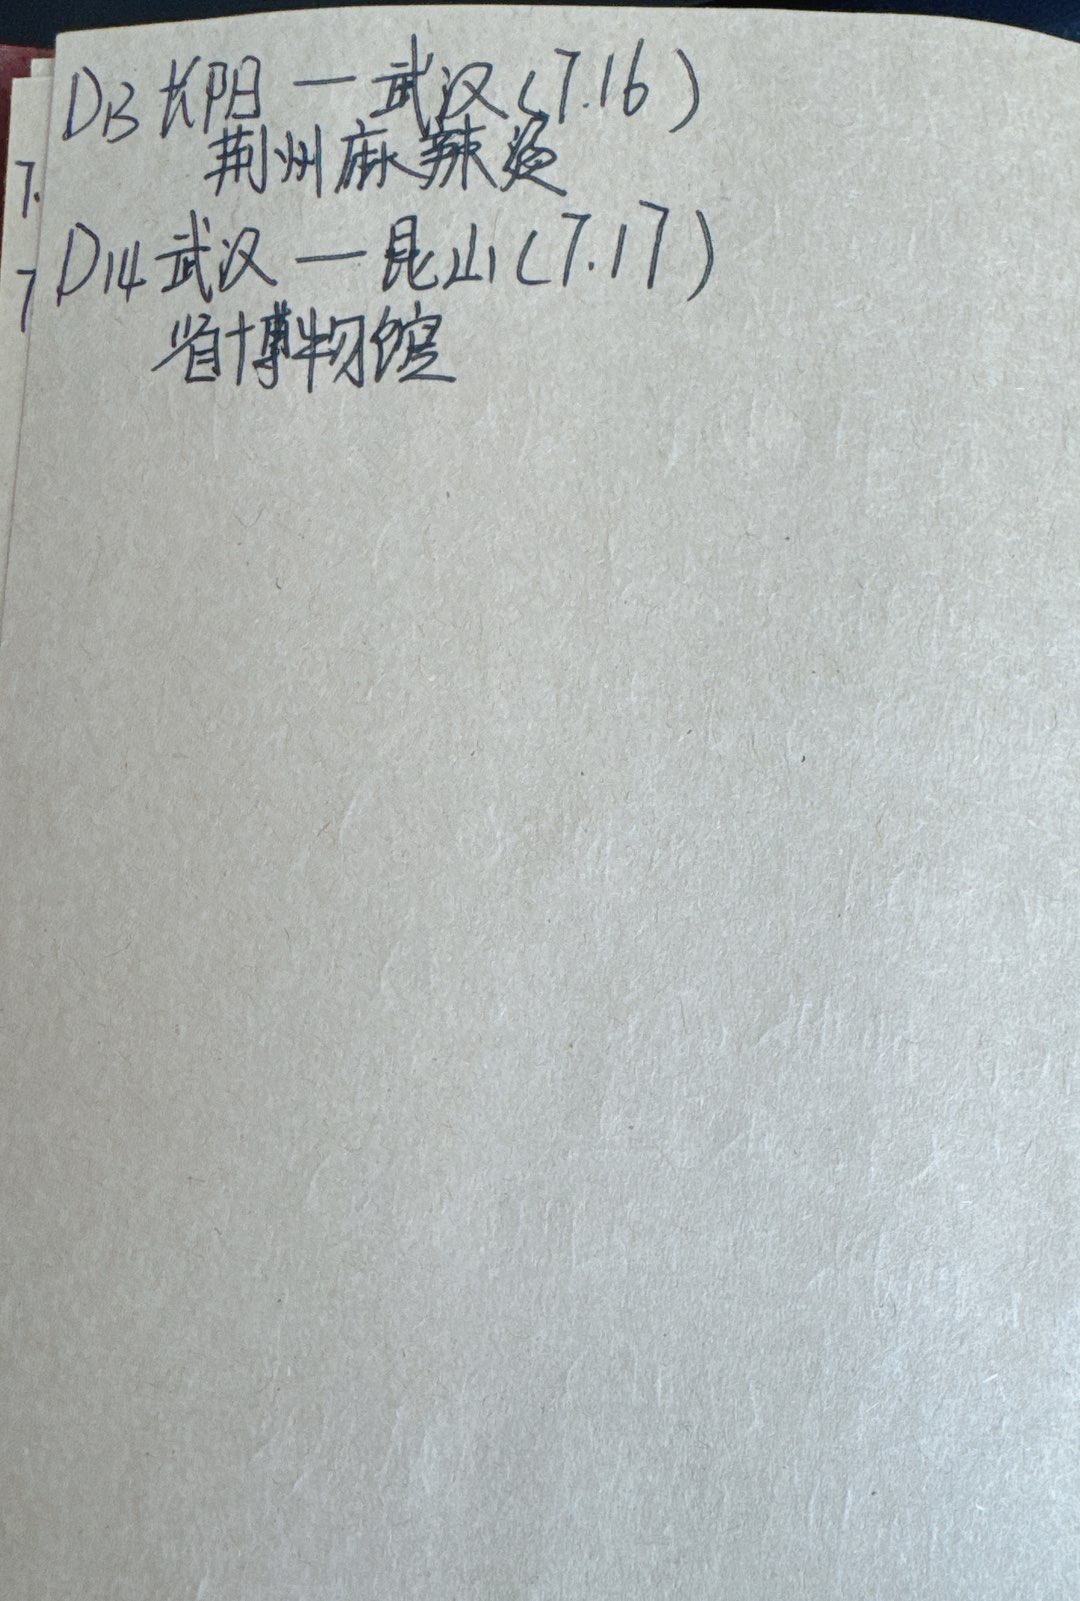 D13 长阳—武汉(7.16)
荆州麻辣烫
D14 武汉—昆山(7.17)
省博物馆
7.
7